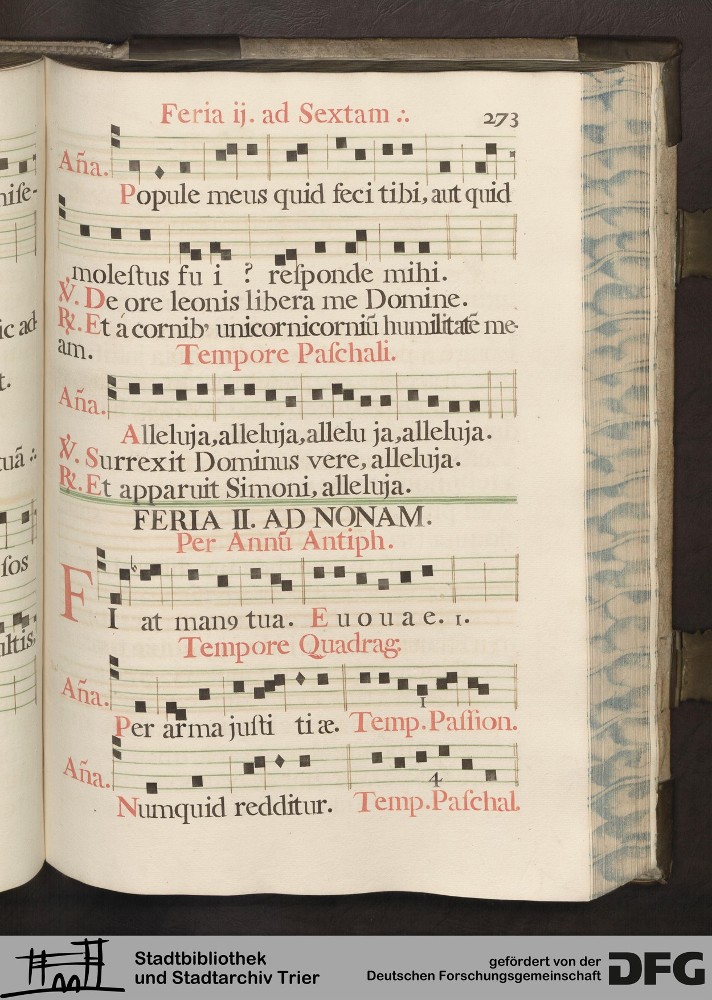 Feria ij. ad Sextam ∴ 273
Aña. Popule meus quid feci tibi, aut quid
moleſtus fu i ? reſponde mihi.
℣. De ore leonis libera me Domine.
℟. Et á cornibꝰ unicornicorniũ humilitatẽ me-
am. Tempore Paſchali.
Aña. Alleluja, alleluja, allelu ja, alleluja.
℣. Surrexit Dominus vere, alleluja.
℟. Et apparuit Simoni, alleluja.
FERIA II. AD NONAM.
Per Annũ Antiph.
FI at manꝰ tua. E u o u a e. 1.
Tempore Quadrag.
Aña. Per arma juſti ti æ. Temp. Paſſion.
1
Aña. Numquid redditur. Temp. Paſchal.
4
niſe-
ic ad-
t.
tuã ∴
ſos
ultis.
Stadtbibliothek
und Stadtarchiv Trier
gefördert von der
Deutschen Forschungsgemeinschaft
DFG